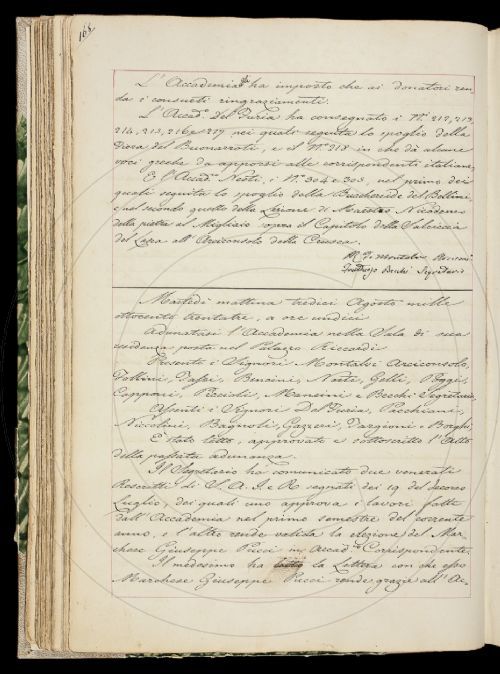 168
L'Accademia gli ha imposto che ai donatori ren-
da i consueti ringraziamenti.
L'Accad.co Del Furia ha consegnato i N.i 212, 213,
214, 215, 216 e 217 nei quali seguita lo spoglio della
Fiera del Buonarroti, e il N.o 218 in che dà alcune
voci greche da apporsi alle corrispondenti italiane.
E l'Accad.co Nesti, i N.i 304 e 305, nel primo dei
quali seguita lo spoglio della Buccheréide del Bellini,
e nel secondo quello della Lezione di Maestro Nicodemo
della pietra al Migliaio sopra il Capitolo della Salsiccia
del Lasca all'Arciconsolo della Crusca.
Segretario
Martedì mattina tredici Agosto mille
ottocento trentatre, a ore undici
Adunatasi l'Accademia nella Sala di sua
residenza posta nel Palazzo Riccardi
Presenti i Signori Montalvi Arciconsolo,
Follini, Tassi, Bencini, Nesti, Gelli, Poggi,
Capponi, Rigoli, Mancini e Becchi Segretario,
Assenti i Signori Del Furia, Pacchiani,
Niccolini, Bagnoli, Gazzeri, Targioni e Borghi,
È stato letto, approvato e sottoscritto l'Atto
della passata adunanza.
Il Segretario ha comunicato due venerati
Rescritti di S. A. I. e R. segnati dei 19 del decorso
Luglio, dei quali uno approva i lavori fatti
dall'Accademia nel primo semestre del corrente
anno, e l'altro rende valida la elezione del Mar-
chese Giuseppe Pucci in Accad.co Corrispondente.
Il medesimo ha letto la Lettera con che esso
Marchese Giuseppe Pucci rende grazie all'Ac-